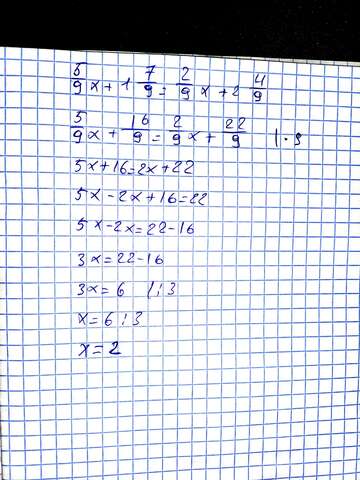 5/9 x + 1 7/9 = 2/9 x + 2 4/9
5/9 x + 16/9 = 2/9 x + 22/9 | · 9
5x+16=2x+22
5x-2x+16=22
5x-2x=22-16
3x=22-16
3x=6 | :3
x=6:3
x=2